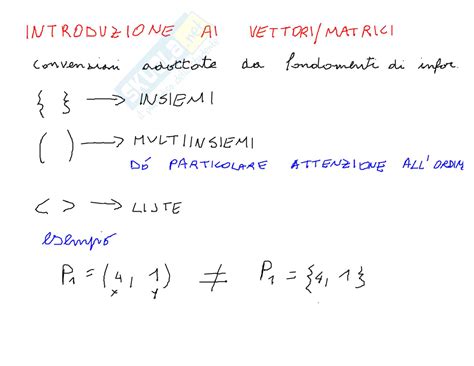 INTRODUZIONE AI VETTORI/MATRICI
convenzioni adottate da fondamenti di infor.
{ } → INSIEMI
( ) → MULTIINSIEMI
DÓ PARTICOLARE ATTENZIONE ALL'ORDIN
< > → LISTE
esempio
P₁ = (4, 1) ≠ P₁ = {4, 1}
x y